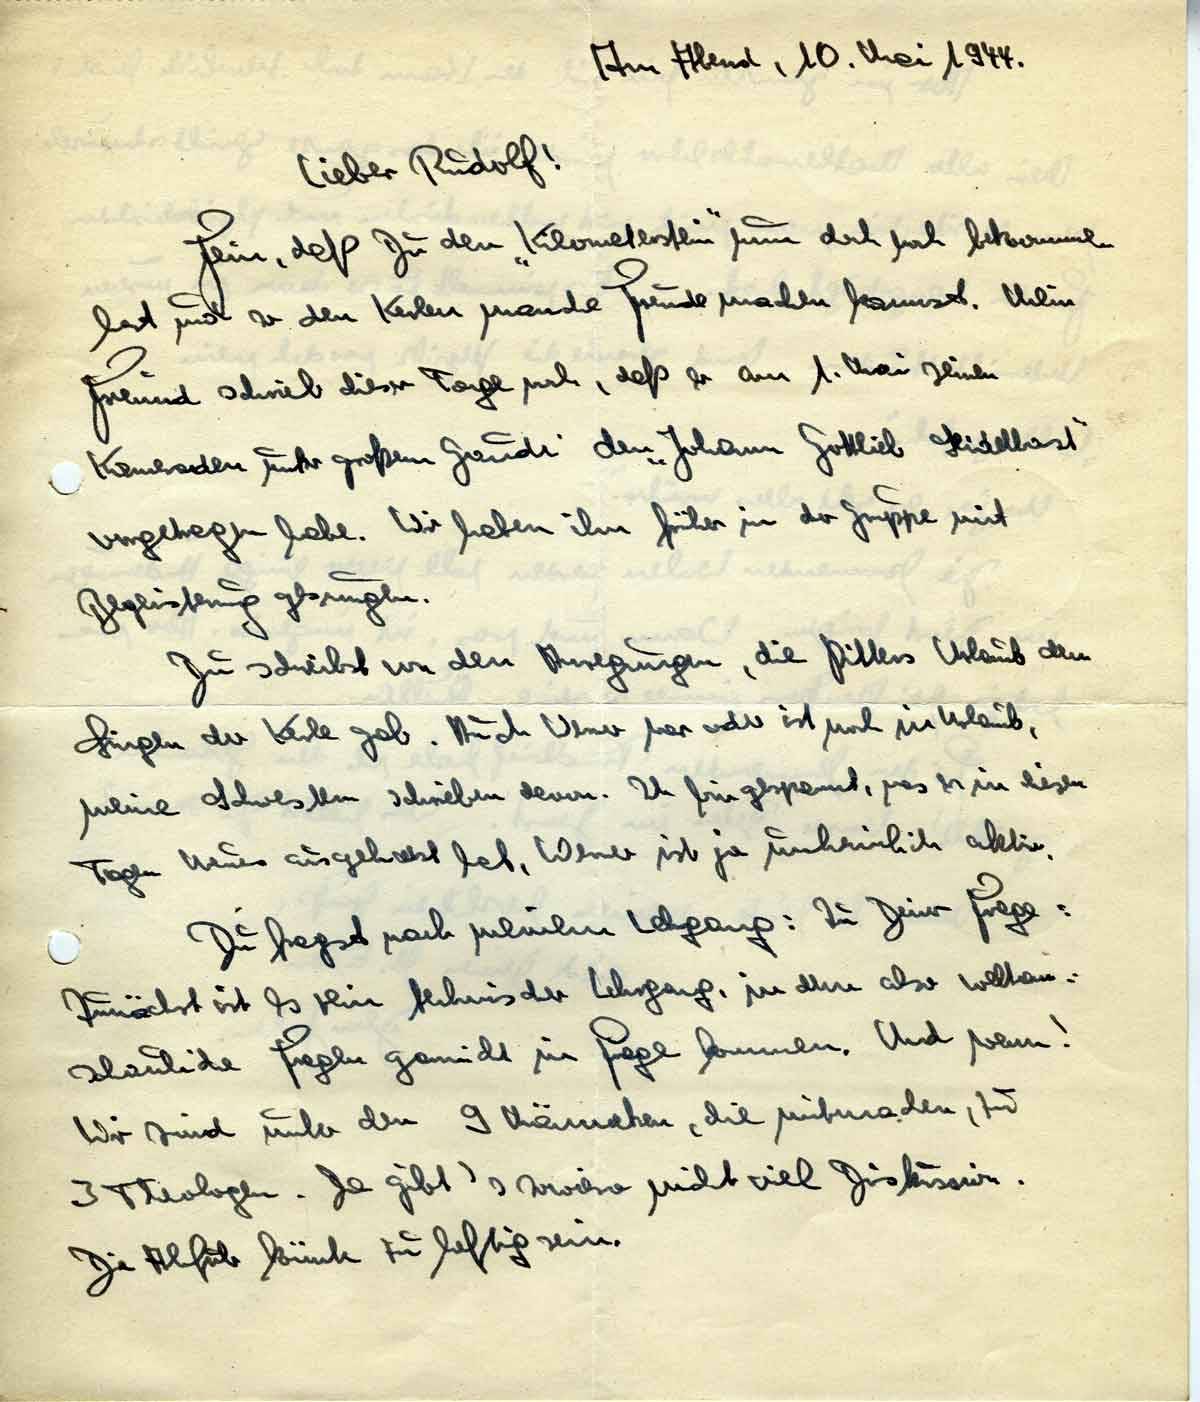 Am Abend, 10. Mai 1944.
Lieber Rudolf!
Fein, daß Du den „Kilometerstein" nun doch noch bekommen
hast und so den Kerlen manche Freude machen kannst. Mein
Freund schrieb dieser Tage noch, daß er am 1. Mai seinen
Kameraden unter großem Gaudi den „Johann Gottlieb Seidelbast"
vorgetragen habe. Wir haben ihn früher in der Gruppe mit
Begeisterung gesungen.
Du schreibst von den Anregungen, die Pitters Urlaub dem
Singen der Kerle gab. Auch Werner war oder ist noch in Urlaub,
meine Schwestern schrieben davon. Ich bin gespannt, was er in diesen
Tagen Neues ausgeheckt hat, Werner ist ja unheimlich aktiv.
Du fragst nach meinem Lehrgang: Zu Deiner Frage:
Zunächst ist es ein technischer Lehrgang, in dem also weltan-
schauliche Fragen garnicht in Frage kommen. Und wenn!
Wir sind unter den 9 Männeken, die mitmachen, zu
3 Theologen. Da gibt's sowieso nicht viel Diskussion.
Die Abfuhr könnte zu heftig sein.